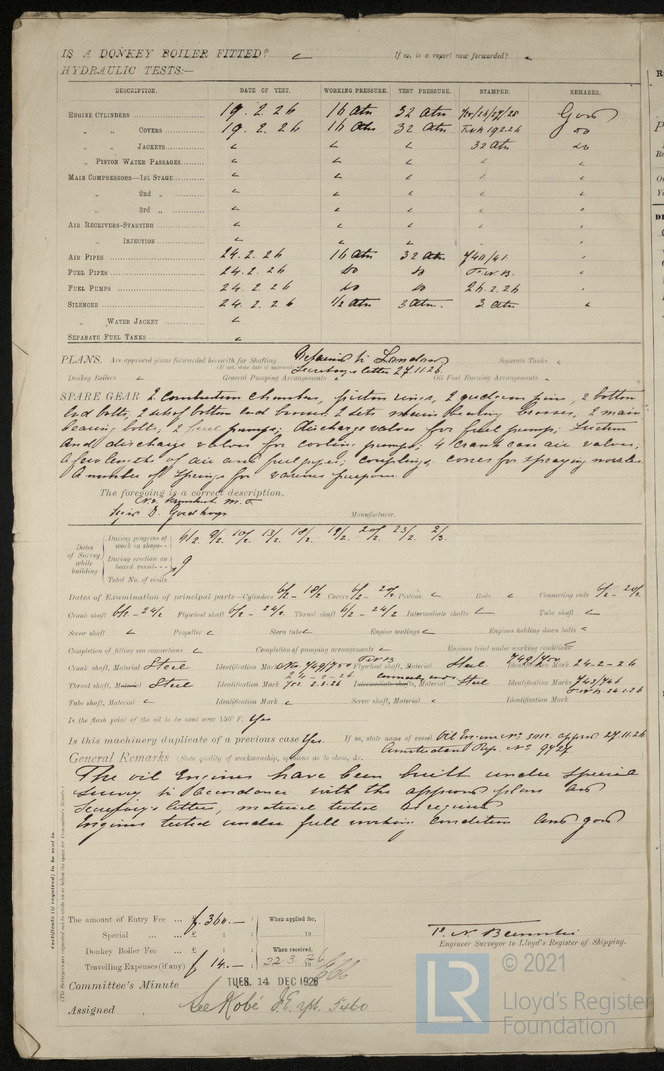 IS A DONKEY BOILER FITTED? If so, is a report now forwarded?
HYDRAULIC TESTS:—
DESCRIPTION. DATE OF TEST. WORKING PRESSURE. TEST PRESSURE. STAMPED. REMARKS.
ENGINE CYLINDERS 19.2.26 16 Atm 32 Atm Good
" " COVERS 19.2.26 16 Atm 32 Atm do
" " JACKETS 32 Atm do
" PISTON WATER PASSAGES
MAIN COMPRESSORS—1ST STAGE
" 2nd "
" 3rd "
AIR RECEIVERS-STARTING
" INJECTION
AIR PIPES 24.2.26 16 Atm 32 Atm 740/41
FUEL PIPES 24.2.26 do do
FUEL PUMPS 24.2.26 do do 24.2.26
SILENCER 24.2.26 1/2 Atm 3 Atm. 3 Atm
" WATER JACKET
SEPARATE FUEL TANKS
PLANS. Are approved plans forwarded herewith for Shafting Retained in London Separate Tanks
(If not, state date of approval) Secretary's letter 27.11.26
Donkey Boilers General Pumping Arrangements Oil Fuel Burning Arrangements
SPARE GEAR 2 combustion chamber, piston rings, 2 gudgeon pins, 2 bottom
end bolts, 2 sets of bottom end brasses, 2 sets main bearing brasses, 2 main
bearing bolts, 2 fuel pumps; discharge valves for fuel pump; suction
and discharge valves for cooling pumps; 4 crank case air valves,
A few lengths of air and fuel pipes; couplings; cones for spraying nozzles
A number of springs for various purposes.
The foregoing is a correct description,
Manufacturer.
Dates of Survey while building
During progress of work in shops
During erection on board vessel
Total No. of visits 9
Dates of Examination of principal parts—Cylinders 6/2 - 18/2 Covers 6/2 - 20/2 Pistons Rods Connecting rods 6/2 - 20/2
Crank shaft 6/2 - 24/2 Flywheel shaft 6/2 - 24/2 Thrust shaft 6/2 - 24/2 Intermediate shafts Tube shaft
Screw shaft Propeller Stern tube Engine seatings Engines holding down bolts
Completion of fitting sea connections Completion of pumping arrangements Engines tried under working conditions
Crank shaft, Material Steel Identification Mark No. 749/750 Flywheel shaft, Material Steel Identification Mark 749/750 24-2-26
Thrust shaft, Material Steel Identification Mark Intermediate shafts, Material Steel Identification Mark 743/746
Tube shaft, Material Identification Mark Screw shaft, Material Identification Mark
Is the flash point of the oil to be used over 150° F. Yes
Is this machinery duplicate of a previous case Yes. If so, state name of vessel Oil Engine No. 3012. approved 27.11.26
Amsterdam Rep. No. 9727
General Remarks (State quality of workmanship, opinions as to class, &c.
The oil Engines have been built under special
survey in accordance with the approved plans and
Secretary's letter, material tested as required
Engines tested under full working condition and good
Certificate (if required) to be sent to
(The Surveyors are requested not to write on or below the space for Committee's Minute.)
The amount of Entry Fee £ 360.— When applied for,
Special £ 19
Donkey Boiler Fee £ When received,
Travelling Expenses (if any) £ 14.— 22-3. 1926
Engineer Surveyor to Lloyd's Register of Shipping.
Committee's Minute TUES. 14 DEC 1926
Assigned See Kobé F.E. rpt. 5460
© 2021
LR
Lloyd's Register
Foundation